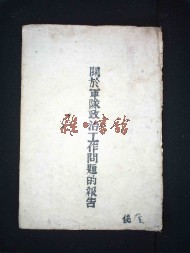 關於軍隊政治工作問題的報告